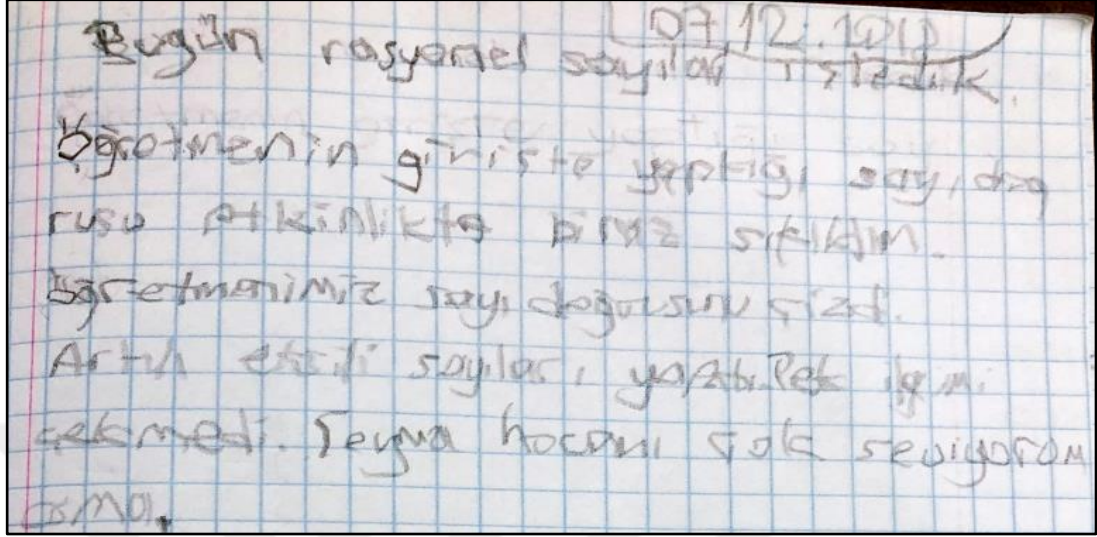 07.12.2018
Bugün rasyonel sayıları işledik.
Öğretmenin girişte yaptığı sayı doğ
rusu etkinlikte biraz sıkıldım.
öğretmenimiz sayı doğrusunu çizdi.
Artılı eksili sayıları yaptı. Pek ilgimi
çekmedi. Şeyma hocamı çok seviyorum
ama.